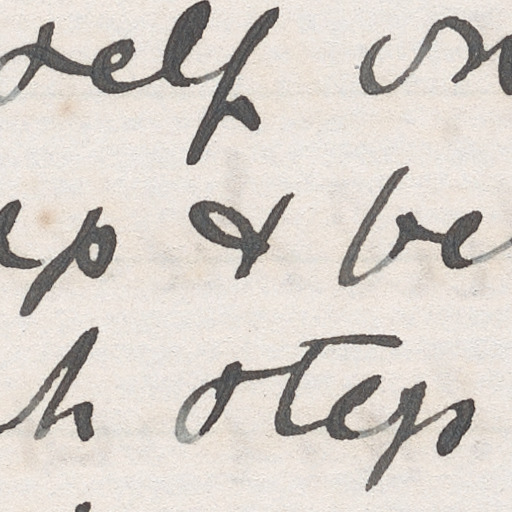 self on
ep & be
h step